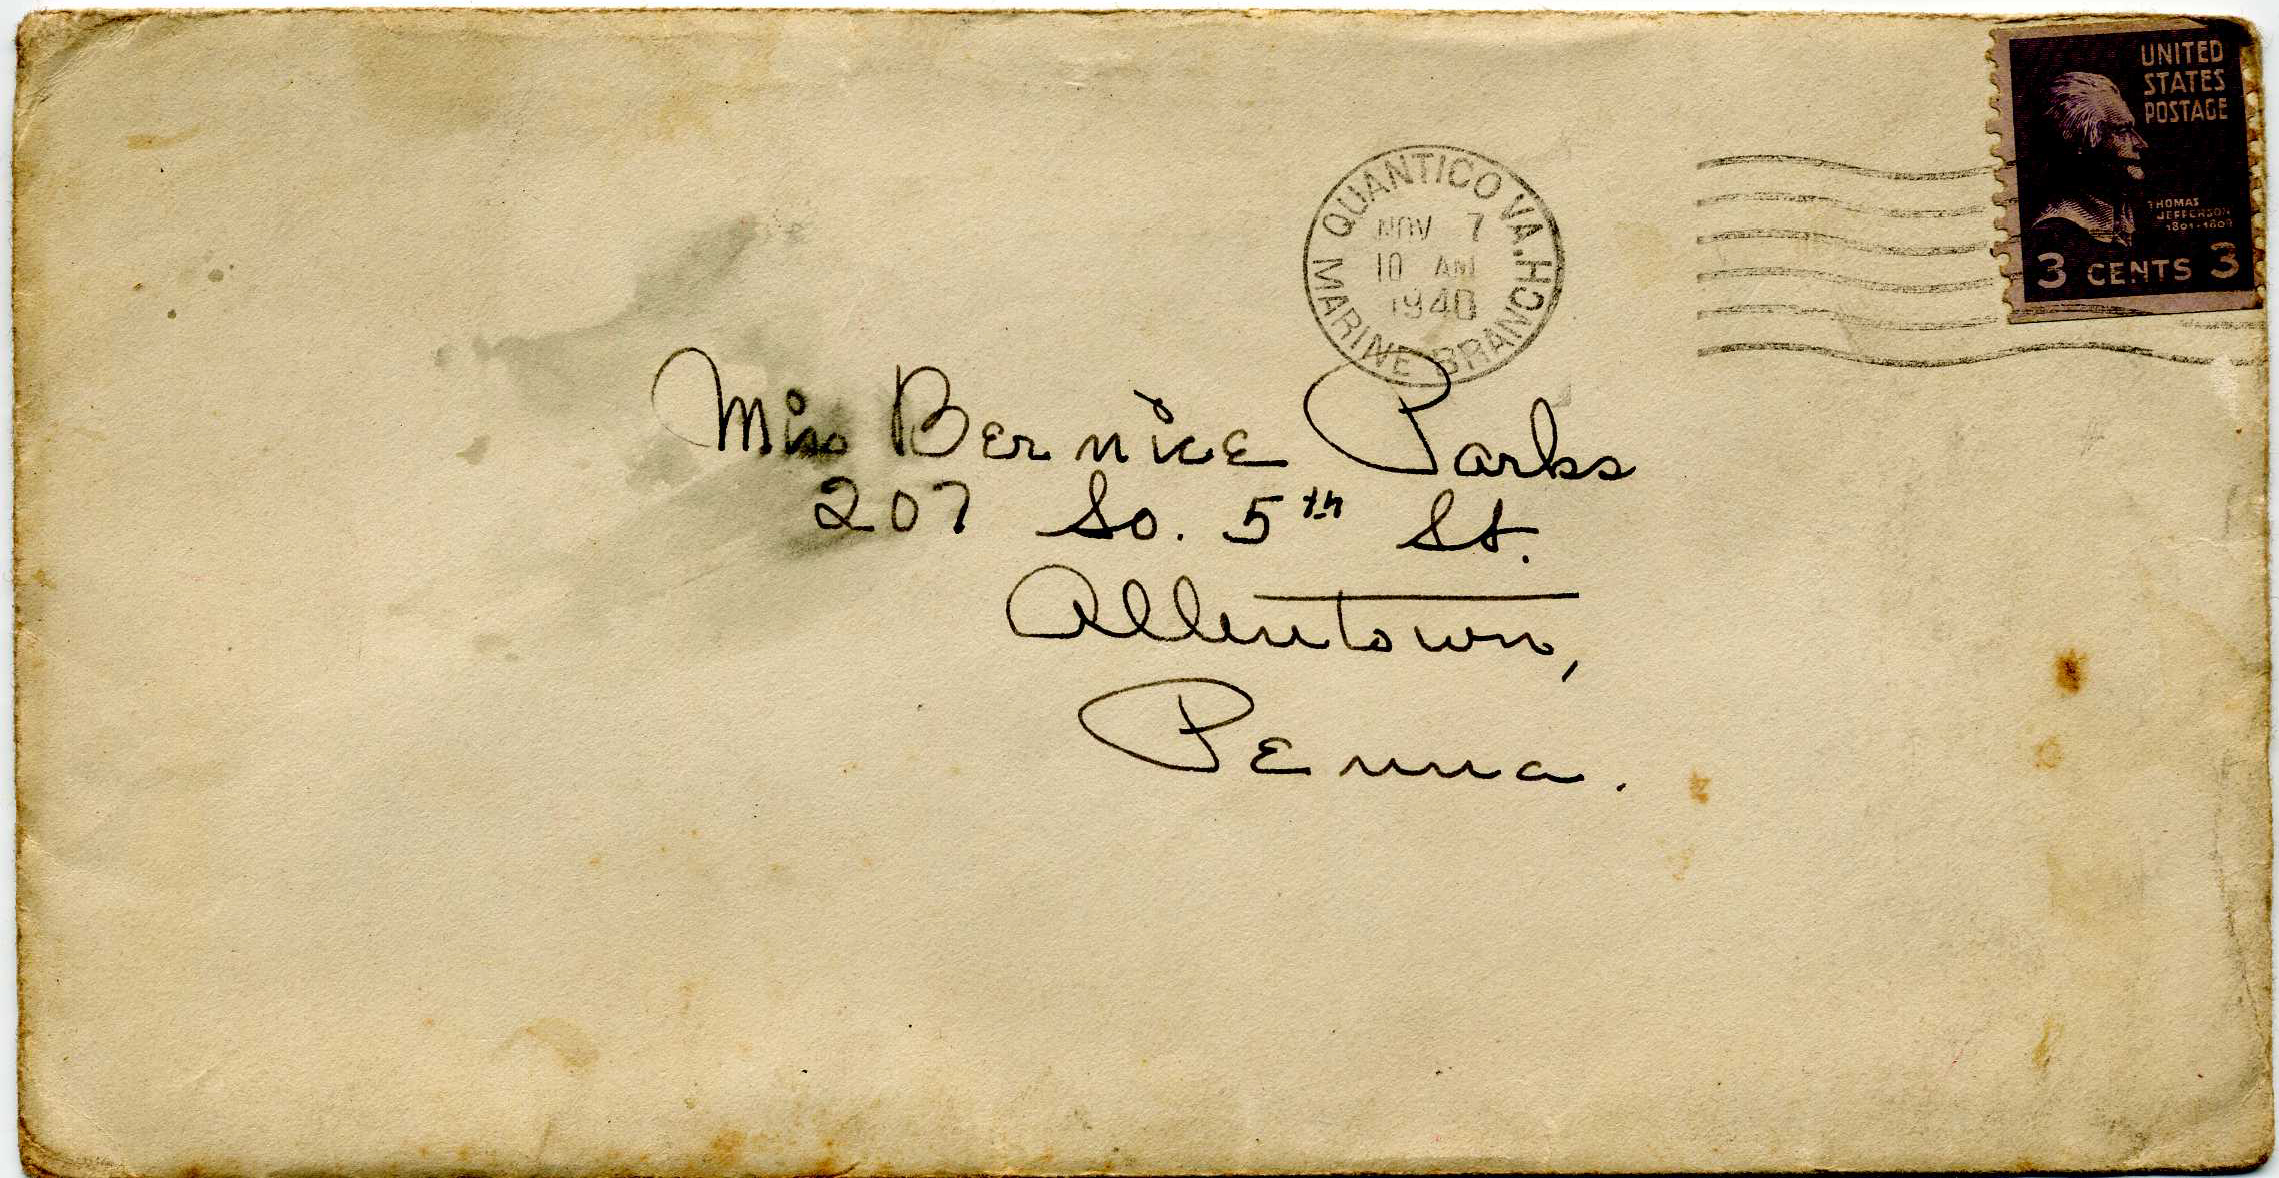 UNITED
STATES
POSTAGE
THOMAS
JEFFERSON
1801-1809
3 CENTS 3
QUANTICO VA.
NOV 7
10 AM
1940
MARINE BRANCH
Miss Bernice Parks
207 So. 5th St.
Allentown,
Penna.